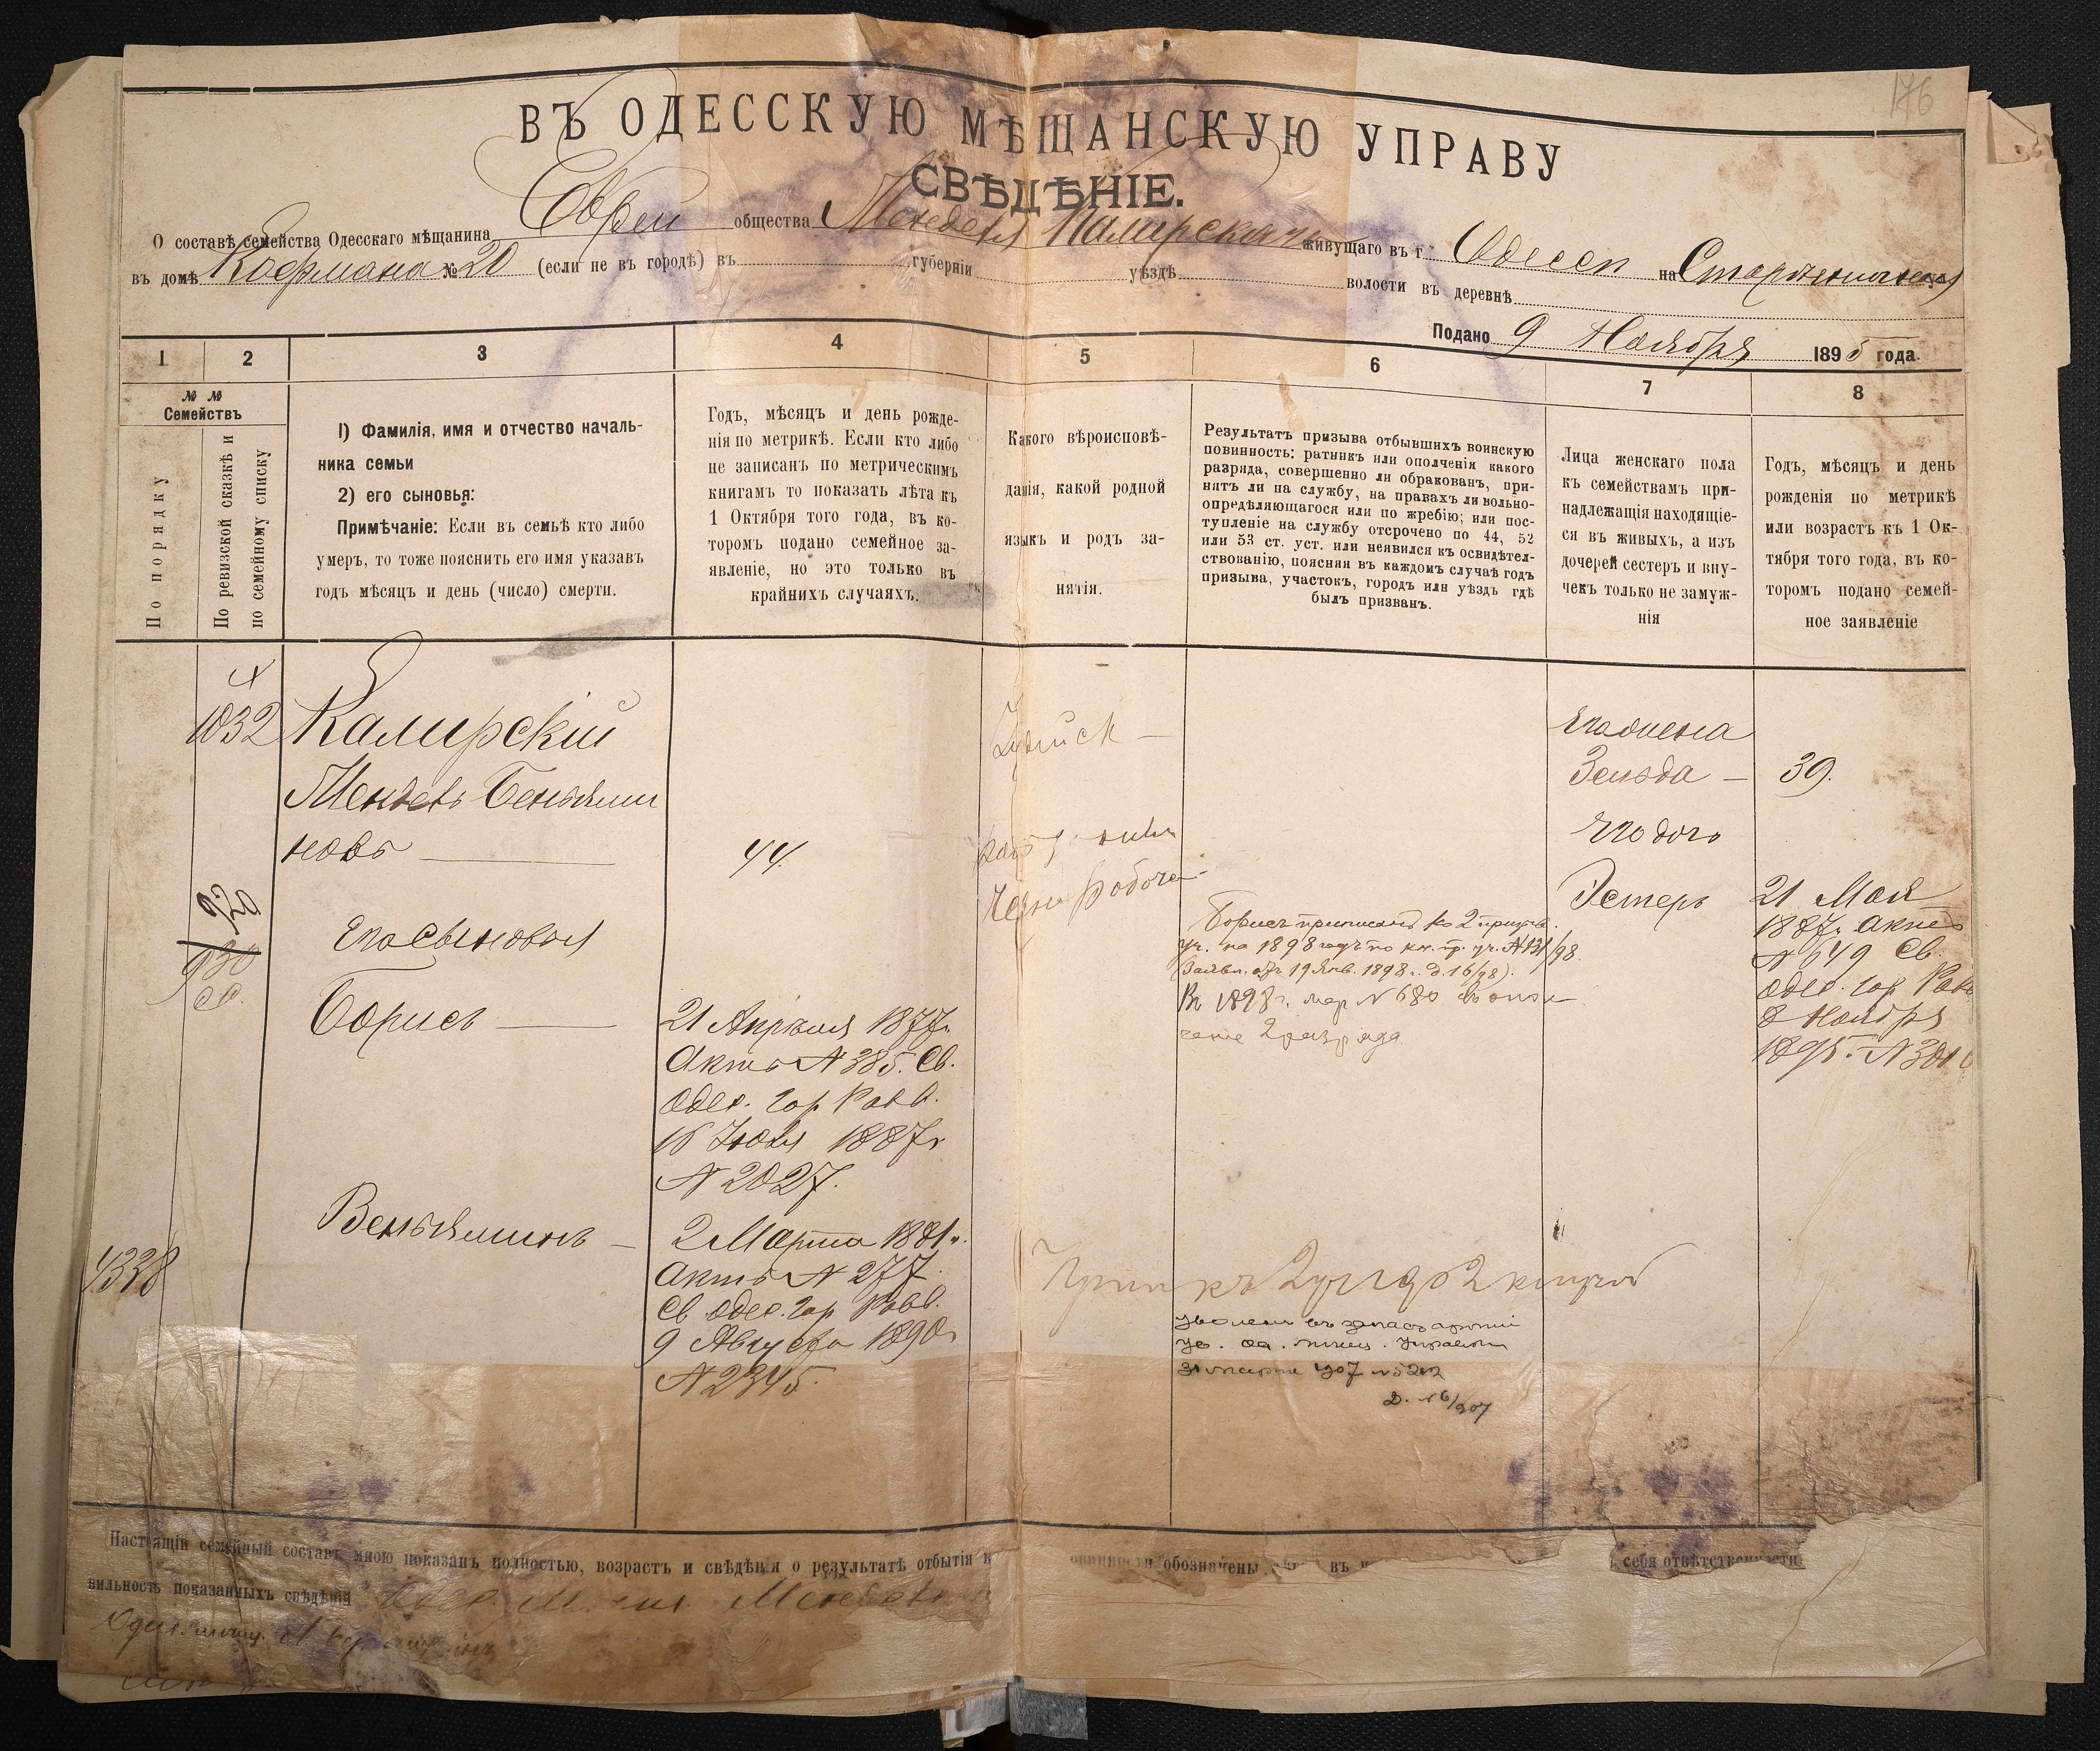 176
ВЪ ОДЕССКУЮ МѢЩАНСКУЮ УПРАВУ
СВѢДѢНІЕ.
О составѣ семейства Одесскаго мѣщанина Еврей общества Менделя Камирскаго живущаго въ г. Одессѣ на
въ домѣ Кофмана № 20 (если не въ городѣ) въ губерніи уѣздѣ волости въ деревнѣ
Подано 9 Ноября 1895 года.
1 2 3 4 5 6 7 8
№ № Семействъ
По порядку
По ревизской сказкѣ и
по семейному списку
1) Фамилія, имя и отчество началь-
ника семьи
2) его сыновья:
Примѣчаніе: Если въ семьѣ кто либо
умеръ, то тоже пояснить его имя указавъ
годъ мѣсяцъ и день (число) смерти.
Годъ, мѣсяцъ и день рожде-
нія по метрикѣ. Если кто либо
не записанъ по метрическимъ
книгамъ то показать лѣта къ
1 Октября того года, въ ко-
торомъ подано семейное за-
явленіе, но это только въ
крайнихъ случаяхъ.
Какого вѣроисповѣ-
данія, какой родной
языкъ и родъ за-
нятія.
Результатъ призыва отбывшихъ воинскую
повинность: ратникъ или ополченія какого
разряда, совершенно ли обракованъ, при-
нятъ ли на службу, на правахъ ли вольно-
опредѣляющагося или по жребію; или пос-
тупленіе на службу отсрочено по 44, 52
или 53 ст. уст. или неявился къ освидѣтел-
ствованію, поясняя въ каждомъ случаѣ годъ
призыва, участокъ, городъ или уѣздъ гдѣ
былъ призванъ.
Лица женскаго пола
къ семействамъ при-
надлежащія находящіе-
ся въ живыхъ, а изъ
дочерей сестеръ и вну-
чекъ только не замуж-
нія
Годъ, мѣсяцъ и день
рожденія по метрикѣ
или возрастъ къ 1 Ок-
тября того года, въ ко-
торомъ подано семей-
ное заявленіе
1032
Камирскій
Мендель Беньями
новъ
44.
Іудейск
Черно рабочей
его жена
Зельда — 39.
его дочь
Эстеръ
21 Мая
1887г. актъ
№ 649 Св.
Одес. гор. Равв
8 Ноября
1895. № 3016
920
930
его сыновья
Борисъ
21 Апрѣля 1877г.
Актъ № 385. Св.
Одес. гор Равв.
16 Іюля 1887г
№ 2027.
Борисъ приписанъ ко 2 призыв.
уч. на 1898 годъ по кн. пр. уч. № 131/98.
(Заявл. отъ 19 Янв. 1898 г. д. 16/98).
Въ 1898 г. жер № 680 въ опол
ченіе 2 разряда
4338
Веньяминъ
2 Марта 1881г.
Актъ № 277.
Св. Одес. гор Равв.
9 Августа 1890г
№ 2345.
уволенъ въ запасъ арміи
31 марта 1907 № 5212
Д. 16/907
Настоящій семейный составъ мною показанъ полностью, возрастъ и свѣдѣнія о результатѣ отбытія обозначены въ себя отвѣтственности
вильность показанныхъ свѣдѣній